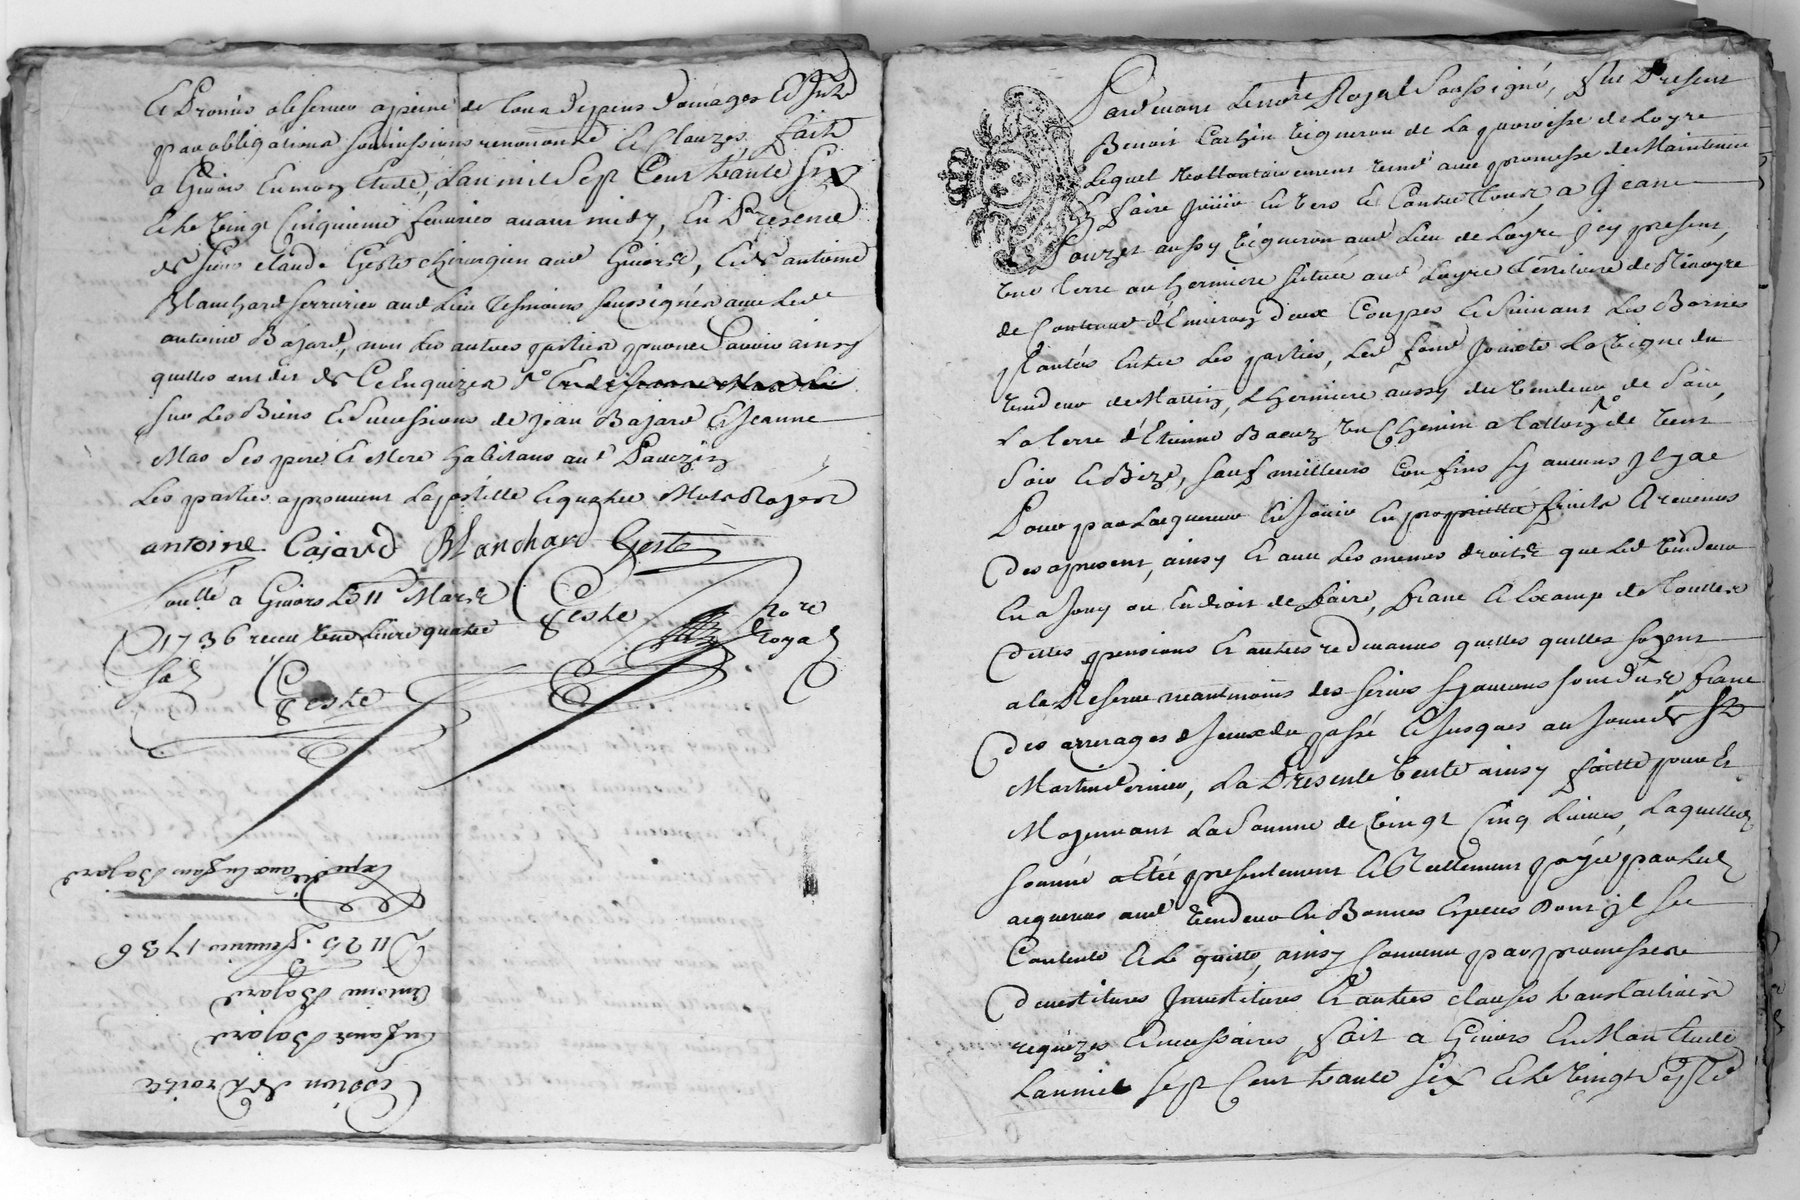 Et Promis observer a peine de tous depens domages
par obligations soumissions renonon Et Clauzes, fait
a Givors En mon Etude, L'an mil Sept Cent trante Six
Et Le vingt Cinquieme fevrier avant midy, En Presence
de Sieur claude Geste chirurgien aud Givors, Et de antoine
Blanchard serrurier aud Lieu tesmoins soussignés avec Led
antoine Bajard, non Les autres parties pour ne Scavoir ainsy
quelles ont dit de Ce Enquizes
sur Les Biens Et Successions de jean Bajard Et Jeanne
Mas Ses pere Et Mere habitans au
Les parties aprouvent La postille Et quatre Mots Rayés
antoine Bajard Blanchard Geste
a Givors Le 11 Mars
1736 receu une Livre quatre
Geste no.re Royal
Sols
Geste
Par devant Le no.re Royal Soussigné, fut Present
Benoit vigneron de La parroisse de Loyre
Lequel vollontairement vend avec promesse de Maintenir
Et faire Jouir Envers Et Contre tous, a Jean
Pouzet aussy vigneron aud Lieu de Loyre Jcy present,
une terre ou hermiere scituée aud Loyre Territoire de
de Contenue d'Environ deux Coupes Et Suivant Les Bornes
Plantées Entre Les parties, Led fond Jouxte La vigne du
vendeur de Matin, L'hermiere aussy du vendeur de Soir,
La terre d'Etienne un Chemin a tallon de vent
Soir Et Bize, Sauf meilleurs Confins sy aucuns Jl y a
Pour par L'acquereur En Jouir En propriette fruits Et revenus
Des a present, ainsy Et avec Les memes droits que Led vendeur
En a Jouy ou En droit de faire, franc Et Exempt de touttes
Dettes pensions Et autres redevances quelles quelles soyent
a La Reserve neantmoins des servis sy aucuns sont dus franc
Des arrerages d'Jceux du passé Et Jusques au Jour de St
Martin dernier, La Presente vente ainsy faitte pour Et
Moyennant La Somme de vingt Cinq Livres, Laquelle
Somme a Eté presentement Et reellement payée par Led
acquereur aud vendeur En Bonnes Especes Dont Jl Se
Contente Et Le quitte, ainsy Convenu par promesses
Devestitures Jnvestitures Et autres clauses translatives
requizes Et necessaires, fait a Givors En Mon Etude
L'an mil sept Cent trante six Et Le vingt
Cession de Droits
Enfans Bajard
Antoine Bajard
Du 25 fevrier 1736
Expedié aux Enfans Bajard